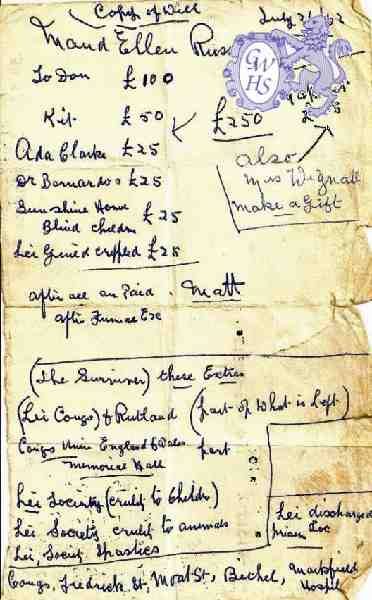 Copy of Will
July 21/62
Maud Ellen
To Don £100
Kit £50
£250
Ada Clarke £25
Dr Barnardos £25
Sunshine Home
Blind children £25
Lei Guild crippled £25
also
Mrs Wignall
make a Gift
GWHS
after all are Paid . Matt
after Funeral Exe
(The Surviver) these Extras
(Lei Congs) & Rutland (part of what is left)
Congs Union England & Wales part
Memorial Hall
Lei Society (cruelt to Children)
Lei Society cruelt to animals
Lei, Societ Spastics
Lei discharged
prison Soc
Congs, Fredrick St, Moat St, Bethel, Markfield
Hospil